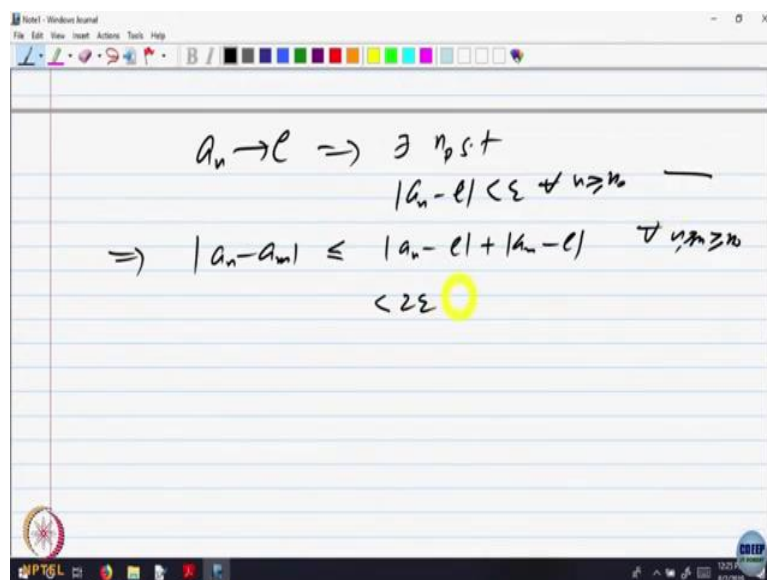 Note1 - Windows Journal
File Edit View Insert Actions Tools Help
B I
aₙ → l ⇒ ∃ n₀ s.t
|aₙ - l| < ε ∀ n ≥ n₀
⇒ |aₙ - aₘ| ≤ |aₙ - l| + |aₘ - l| ∀ n, m ≥ n₀
< 2ε
NPTEL
CDEEP